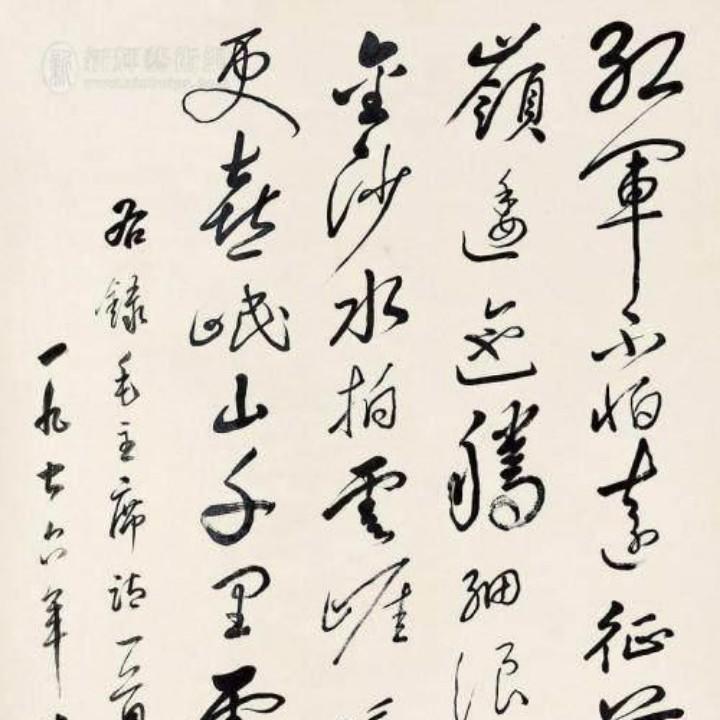 紅軍不怕遠征
嶺逶迤騰細浪
金沙水拍雲崖
更喜岷山千里雪
右錄毛主席詩一首
一九七六年